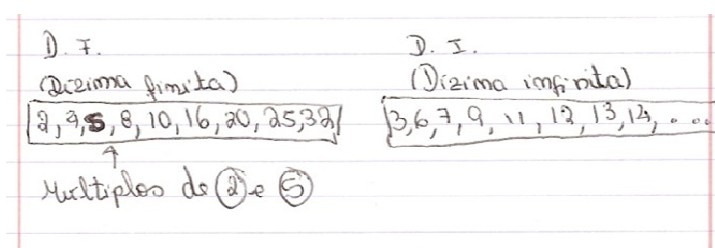 D. F.
(Dízima finita)
2, 4, 5, 8, 10, 16, 20, 25, 32
Multiplos de 2 e 5
D. I.
(Dízima infinita)
3, 6, 7, 9, 11, 12, 13, 14, ...